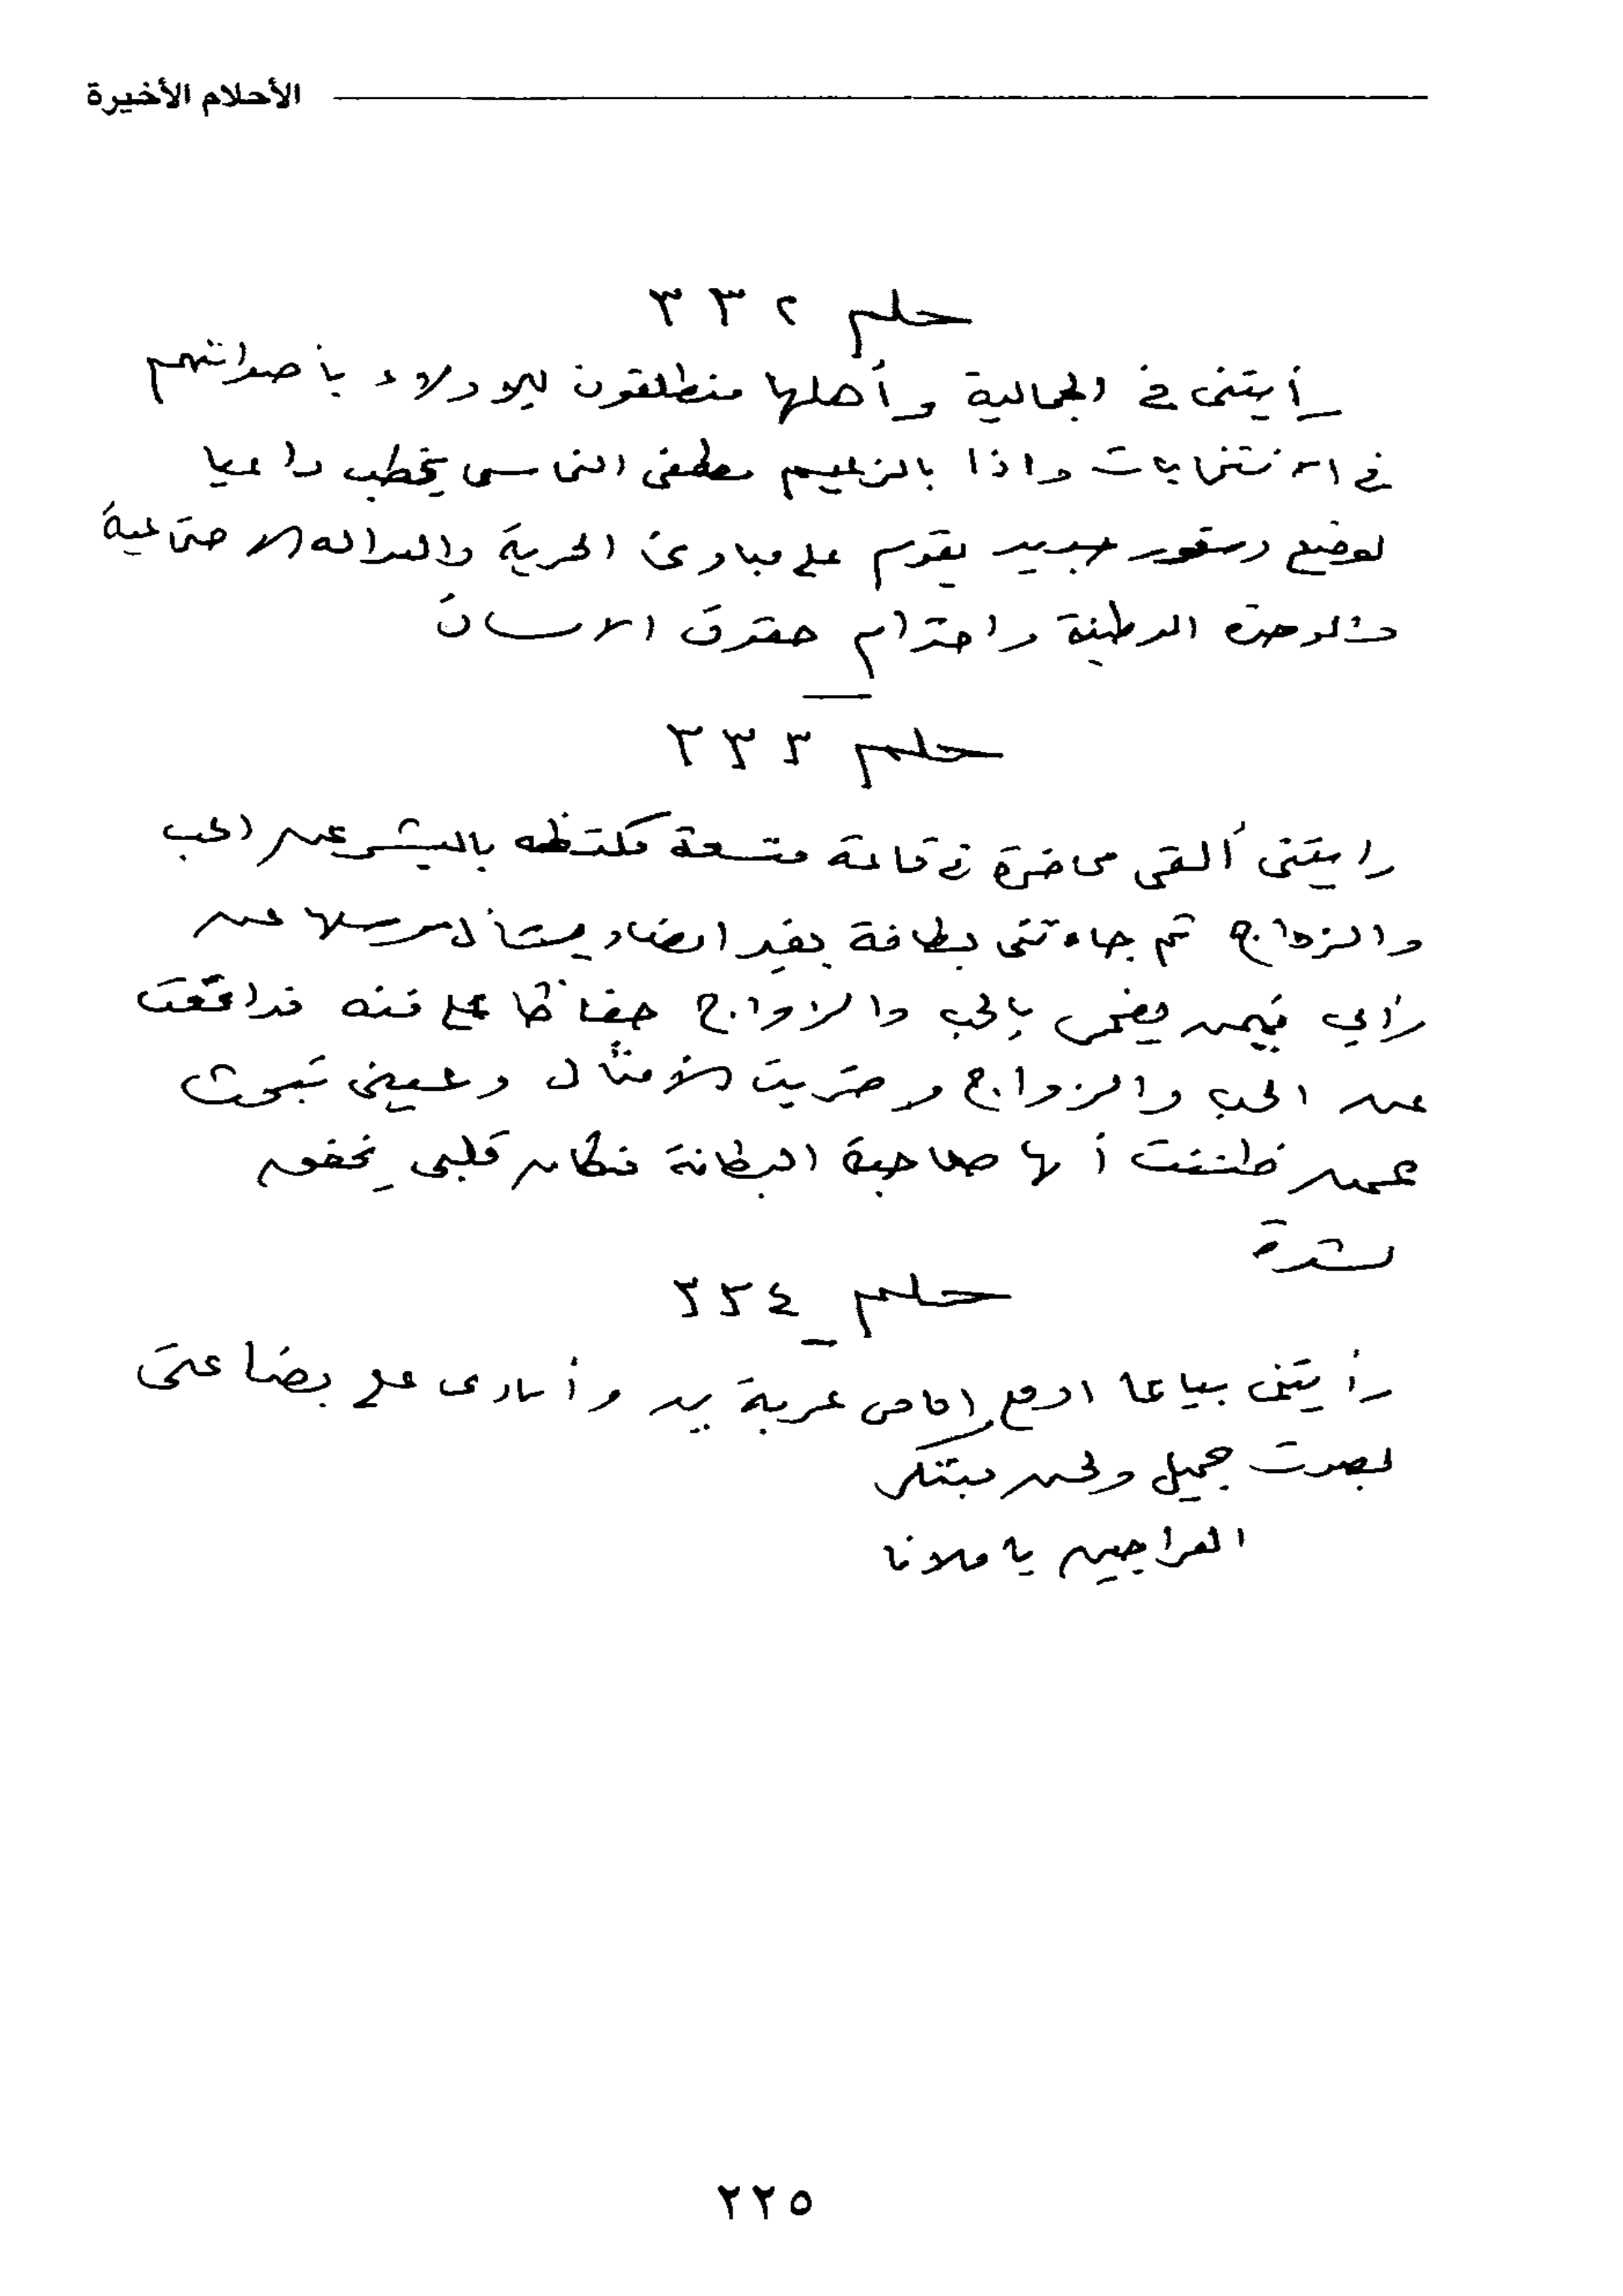 الأحلام الأخيرة
حلم ٣٣٢
رأيتنى في الجمالية وأهلها منطلقون ليدلاء بأصواتهم
في الانتخابات واذا بالزعيم مصطفى النحاس يخطب داعيا
لوضع دستور جديد يقوم على مبادئ الحرية والعدالة الاجتماعية
والوحدة الوطنية واحترام حقوق الانسان
حلم ٣٣٣
رايتنى ألقى محاضرة في قاعة متسعة مكتظه بالبشر عن الحب
والزواج ثم جاءتنى بطاقة بغير امضاء يسأل مرسلها عن
رأيي فيمن يضحى بالحب والزواج حفاظا على فنه فدافعت
عن الحب والزواج وضربت الأمثال وعينى تبحث
عمن ظننت أنها صاحبة البطاقة فكان قلبى يخفق
بشدة
حلم ٣٣٤
رأيتنى بياعا ادفع امامى عربة يد وأنادى على بضاعتى
بصوت جميل ولحن مبتكر
العراجين يا ملانا
٢٢٥